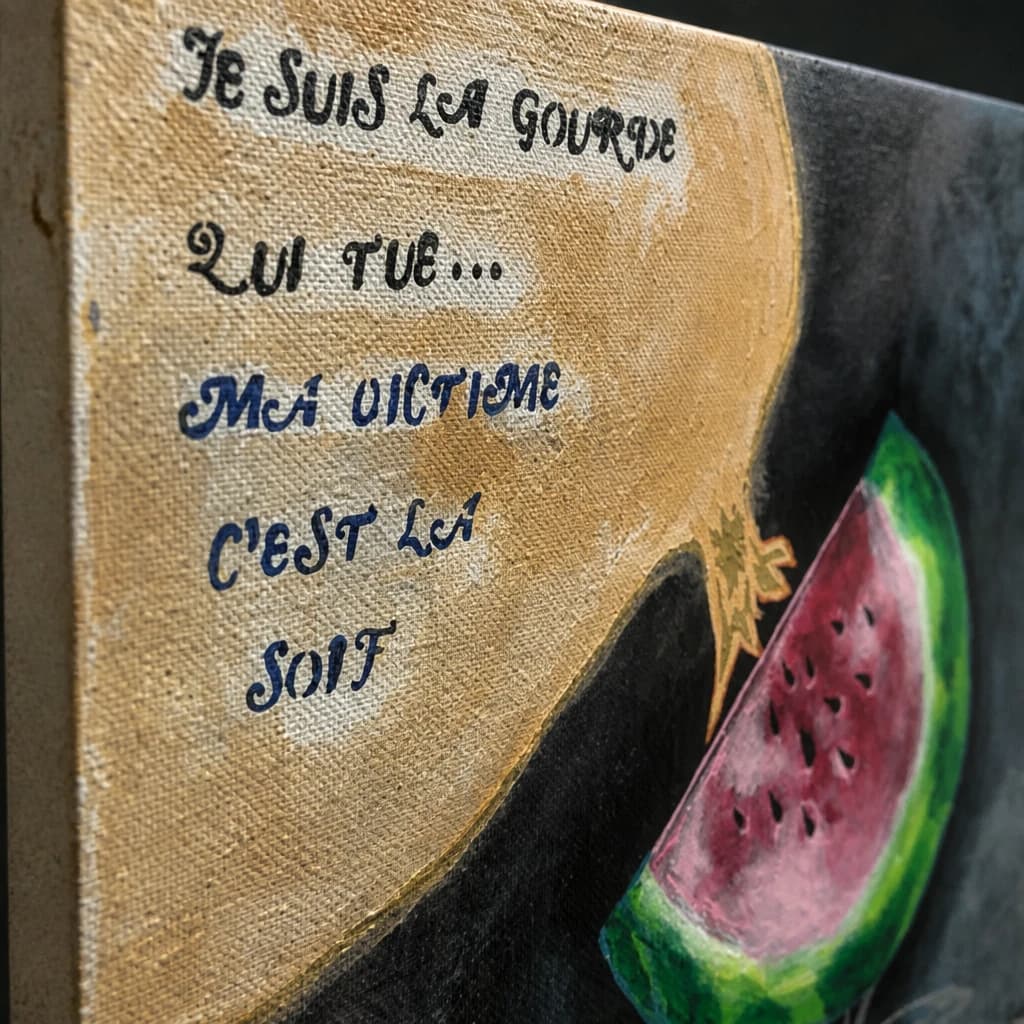 JE SUIS LA GOURDE
QUI TUE...
MA VICTIME
C'EST LA
SOIF